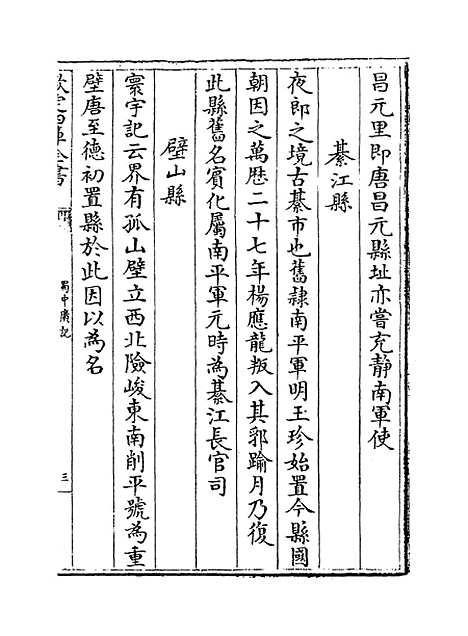 昌元里即唐昌元縣址亦嘗充靜南軍使
綦江縣
夜郎之境古綦市也舊隸南平軍明玉珍始置今縣國
朝因之萬歴二十七年楊應龍叛入其郛踰月乃復
此縣舊名賓化屬南平軍元時為綦江長官司
璧山縣
寰宇記云界有孤山壁立西北險峻東南削平號為重
壁唐至德初置縣於此因以為名
欽定四庫全書
蜀中廣記
三